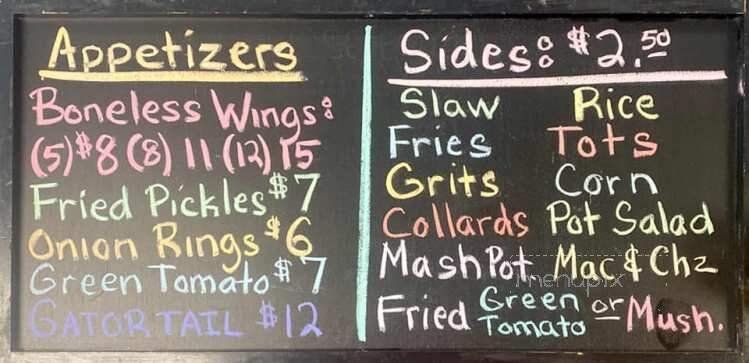 Appetizers
Boneless Wings:
(5) $8 (8) 11 (12) 15
Fried Pickles $7
Onion Rings $6
Green Tomato $7
GATOR TAIL $12
Sides: $2.50
Slaw Rice
Fries Tots
Grits Corn
Collards Pot Salad
Mash Pot Mac & Chz
menupix
Fried Green Tomato or Mush.